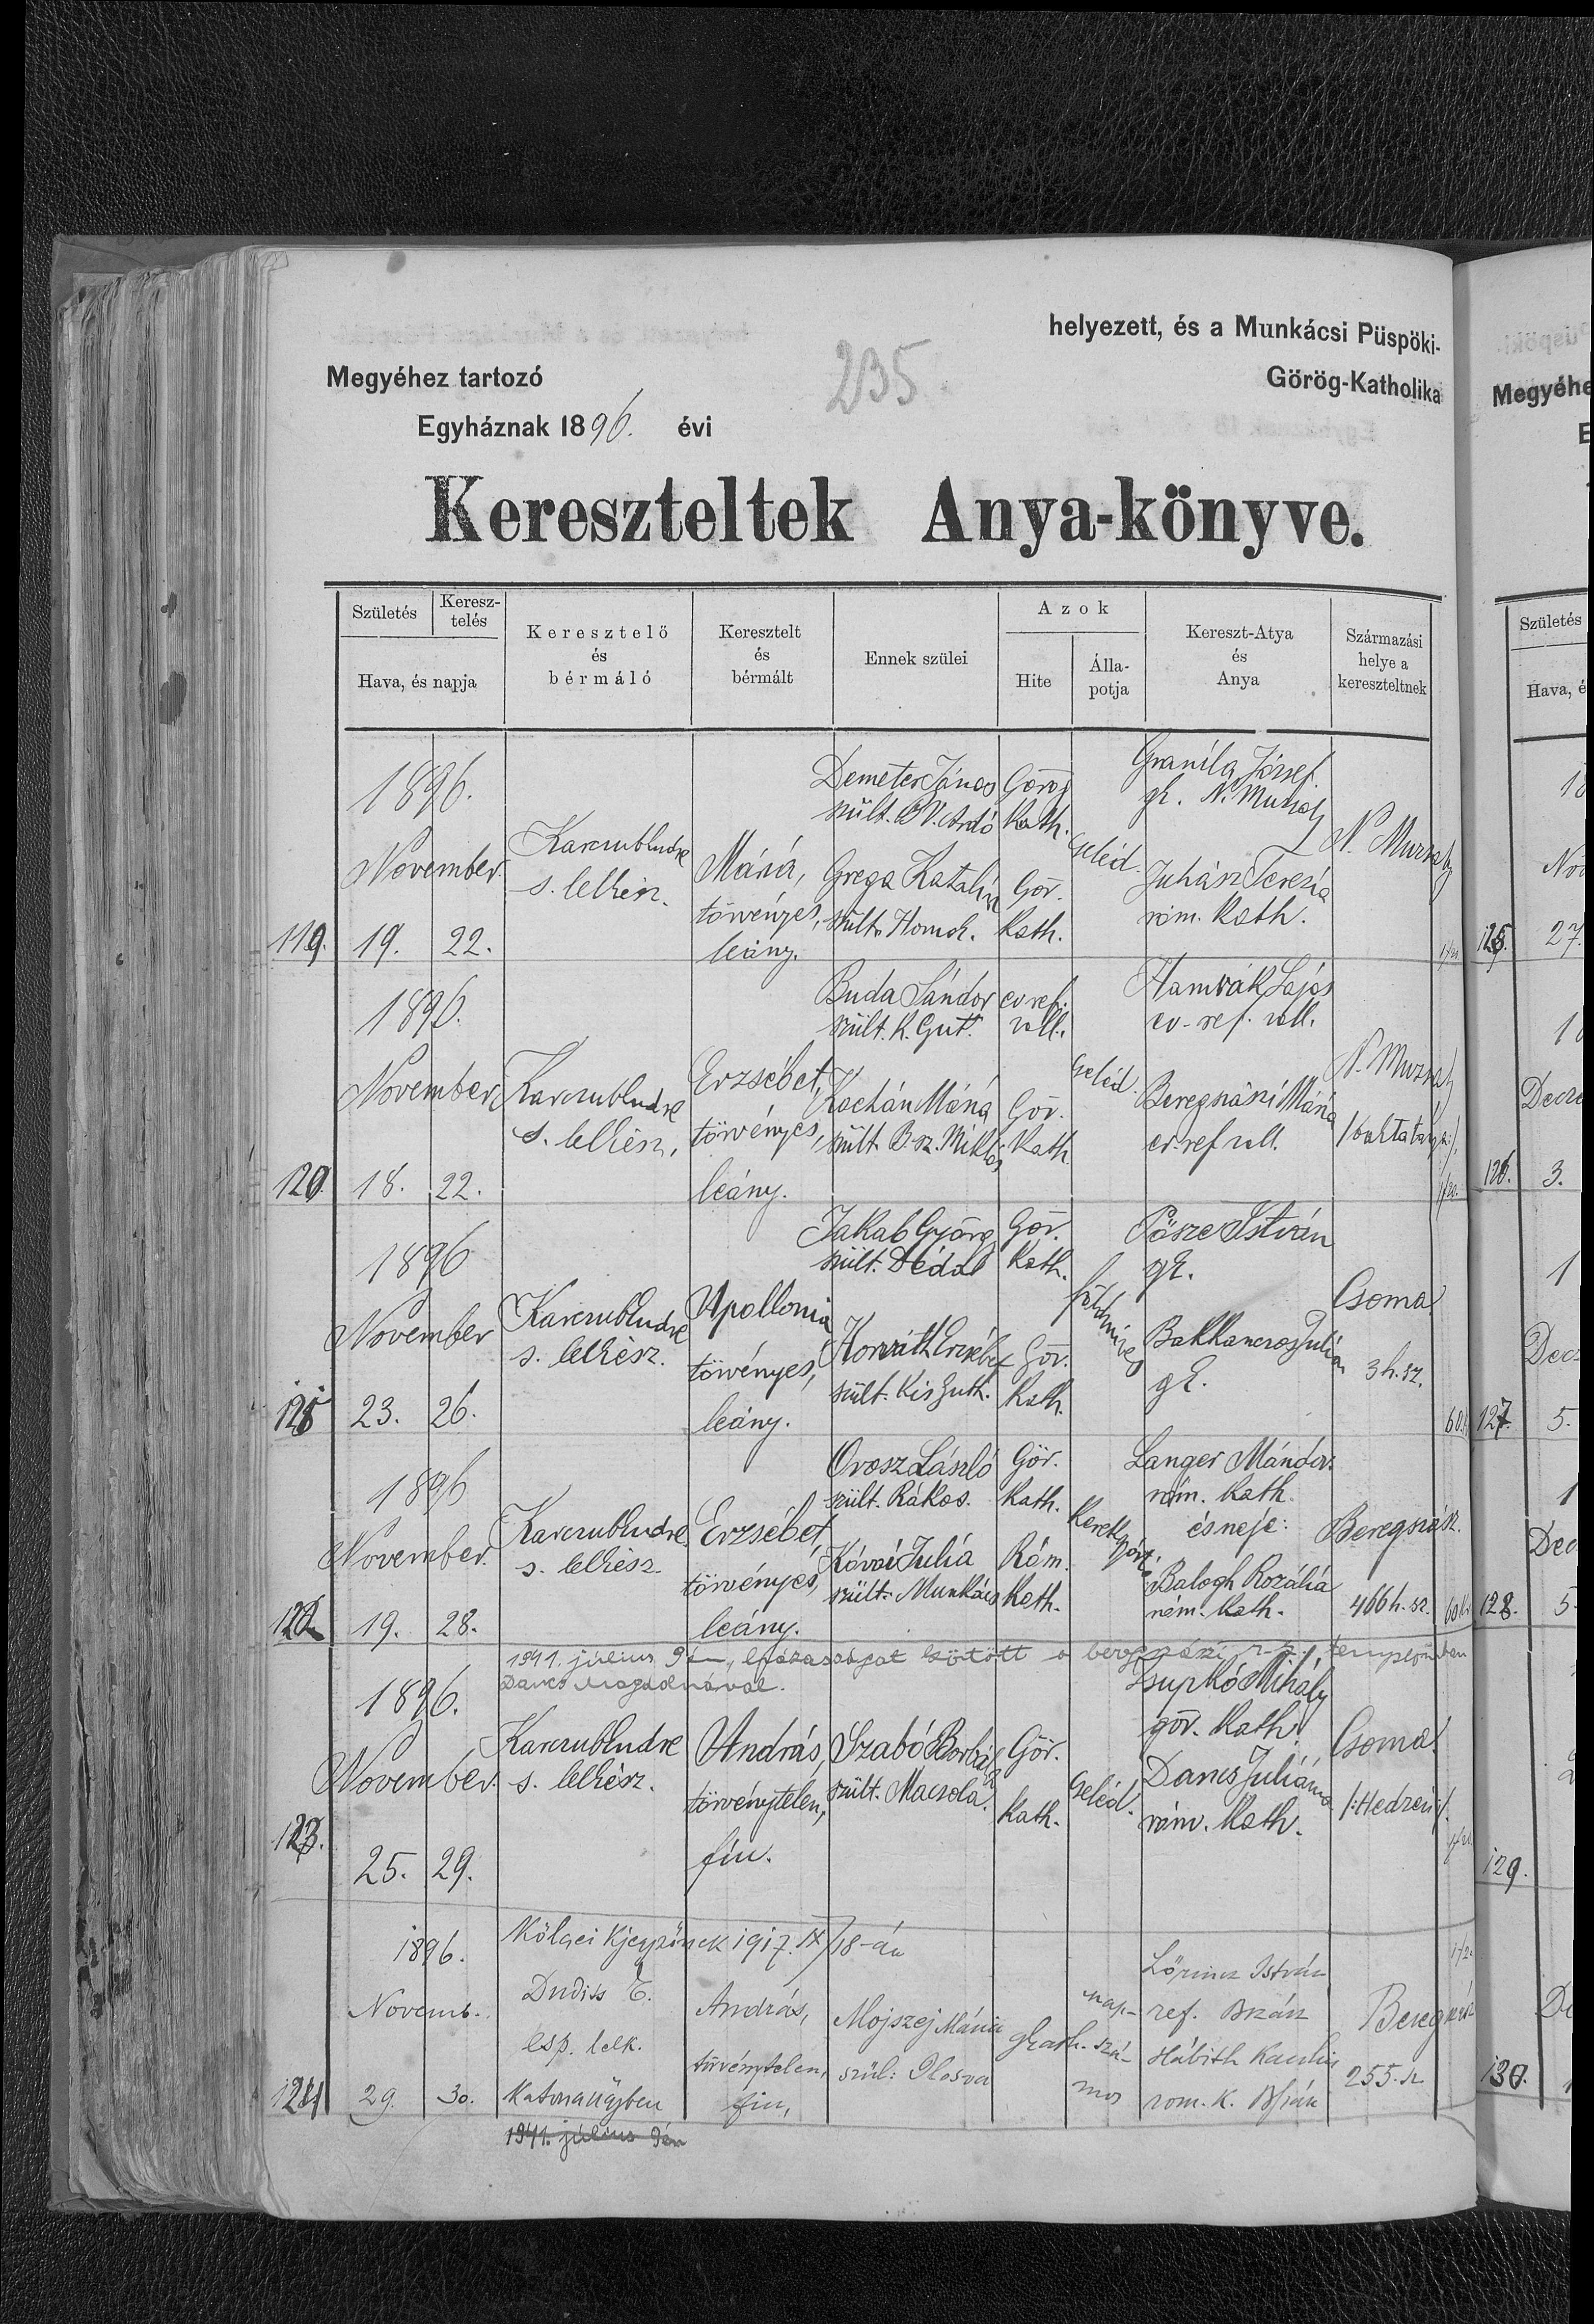 helyezett, és a Munkácsi Püspöki-
Megyéhez tartozó
235.
Görög-Katholika
Egyháznak 1896. évi
Kereszteltek Anya-könyve.
Születés
Keresz-
telés
Hava, és napja
Keresztelő
és
bérmáló
Keresztelt
és
bérmált
Ennek szülei
Azok
Hite
Álla-
potja
Kereszt-Atya
és
Anya
Származási
helye a
kereszteltnek
119.
1896.
November
19. 22.
s. lelkész.
Mária,
törvényes,
leány.
Demeter János
szült. B.V. Ardó
Grega Katalin
szült. Homok.
Görög
Kath.
Gör.
Kath.
cseléd.
József
gk. N. Muzsaly
Juhász Terézia
róm. Kath.
N. Muzsaly
120.
1896.
November
18. 22.
s. lelkész,
Erzsébet,
törvényes,
leány.
Buda Sándor
szült. K. Gut.
Kachán Mária
szült. B. sz. Miklós
ev. ref.
vall.
Gör.
Kath.
cseléd.
Lajos
ev. ref. vall.
Beregszászi Mária
ev. ref vall.
N. Muzsaly
1896
November
23. 26.
s. lelkész.
Apollonia
törvényes,
leány.
Jakab György
szült. Dédal
Horváth Erzsébet
szült. Kis Guth.
Gör.
Kath.
Gör.
Kath.
földmives
Pősze István
gk.
Bakkancsos Julia
gk.
Csoma
3 h. sz.
60.
122.
1896
November.
19. 28.
s. lelkész.
Erzsébet,
törvényes,
leány.
Orosz László
szült. Rákos.
Kóvái Julia
szült. Munkács
Gör.
Kath.
Róm.
Kath.
Langer Nándor.
róm. Kath.
és neje:
Balogh Rozália
róm. Kath.
Beregszász.
466 h. sz.
1941. július 9én, házasságot kötött a beregszászi templomban
Dancs Magdolnával.
123.
1896.
November.
25. 29.
s. lelkész.
András,
törvénytelen,
fiu.
Szabó Borbála
szült. Macsola.
Gör.
Kath.
cseléd.
Zsupkó Mihály
gör. Kath.
Dancs Juliánna
róm. Kath.
Csoma
124
1896.
Novemb.
29. 30.
1917. IX/18-án
Dudiss E.
esp. lelk.
Katonaügyben
András,
törvénytelen,
fiu,
Mojszej Mária
szül: Ilosva
gkath.
nap-
szá-
mos
Lőrincz István
ref.
rom. K.
Beregszász
255. sz
1941. július 9én
Megyéhe
Születés
Hava, é
27.
Decz
126.
3.
127.
5.
128.
5.
129.
130.